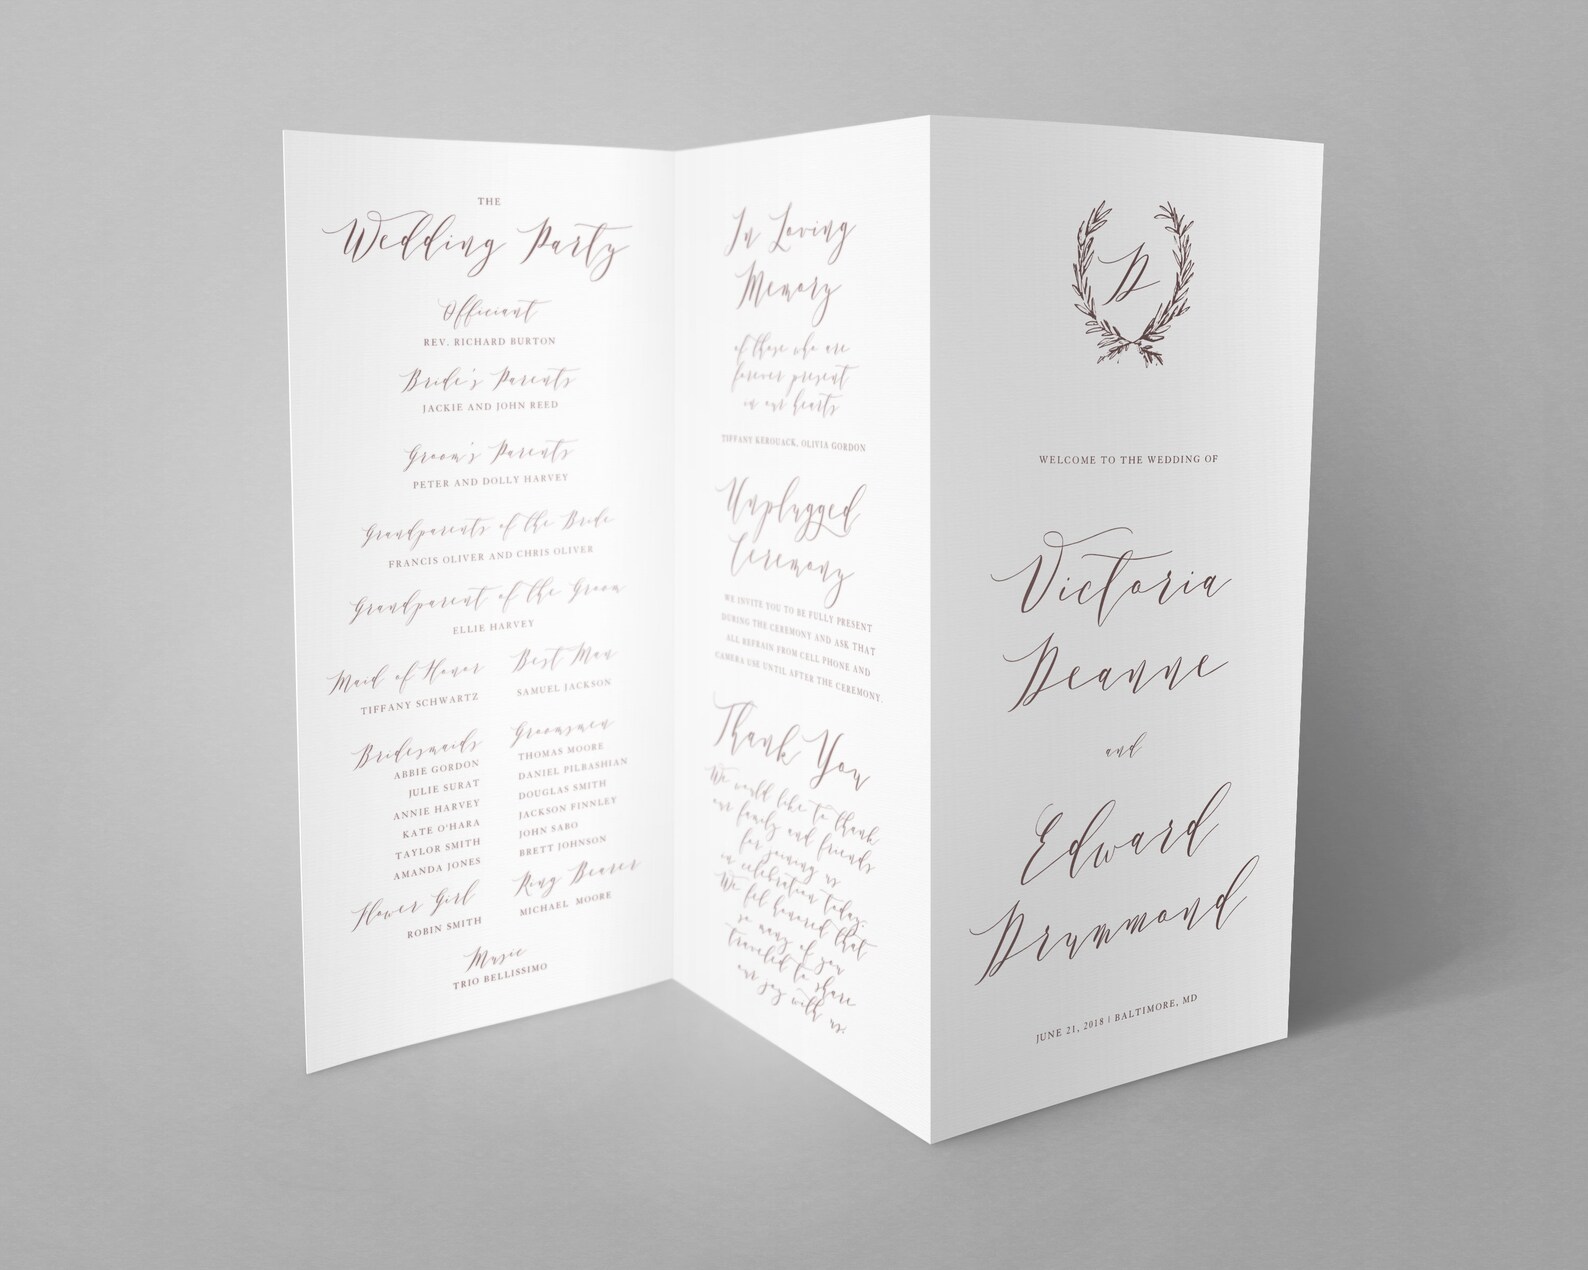 THE
Wedding Party
Officiant
REV. RICHARD BURTON
Bride's Parents
JACKIE AND JOHN REED
Groom's Parents
PETER AND DOLLY HARVEY
Grandparents of the Bride
FRANCIS OLIVER AND CHRIS OLIVER
Grandparent of the Groom
ELLIE HARVEY
Maid of Honor
TIFFANY SCHWARTZ
Bridesmaids
ABBIE GORDON
JULIE SURAT
ANNIE HARVEY
KATE O'HARA
TAYLOR SMITH
AMANDA JONES
Flower Girl
ROBIN SMITH
Best Man
SAMUEL JACKSON
Groomsmen
THOMAS MOORE
DANIEL PILBASHIAN
DOUGLAS SMITH
JACKSON FINNLEY
JOHN SABO
BRETT JOHNSON
Ring Bearer
MICHAEL MOORE
Music
TRIO BELLISSIMO
In Loving
Memory
of those who are
forever present
in our hearts
TIFFANY KEROUACK, OLIVIA GORDON
Unplugged
Ceremony
WE INVITE YOU TO BE FULLY PRESENT
DURING THE CEREMONY AND ASK THAT
ALL REFRAIN FROM CELL PHONE AND
CAMERA USE UNTIL AFTER THE CEREMONY.
Thank You
We would like to thank
our family and friends
for joining us
in celebration today.
We feel honored that
so many of you
traveled to share
our joy with us.
D
WELCOME TO THE WEDDING OF
Victoria
Deanne
and
Edward
Drummond
JUNE 21, 2018 | BALTIMORE, MD